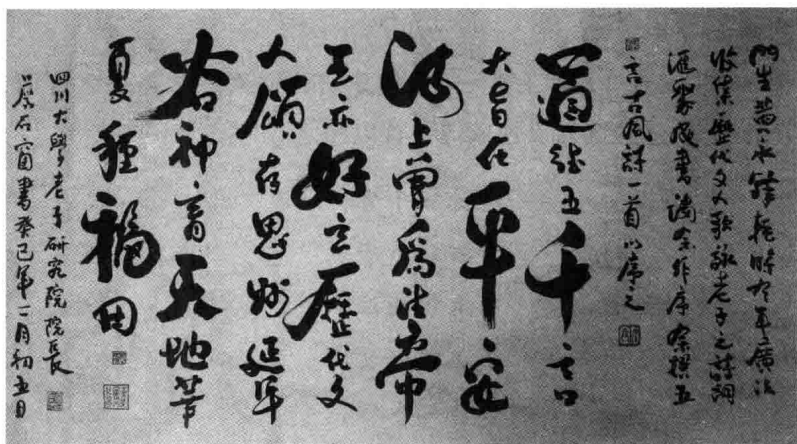 門生黃永鋒耗時年廣泛
收集歷代文人歌詠老子之詩詞
匯聚成書請余作序余撰五
言古風詩一首以序之
道德五千言
大旨在平安
河上曾為注帝
王亦好玄歷代文
人頌存思妙延年
谷神育天地華
夏種福田
四川大學老子研究院院長
詹石窗書癸巳年二月初五日